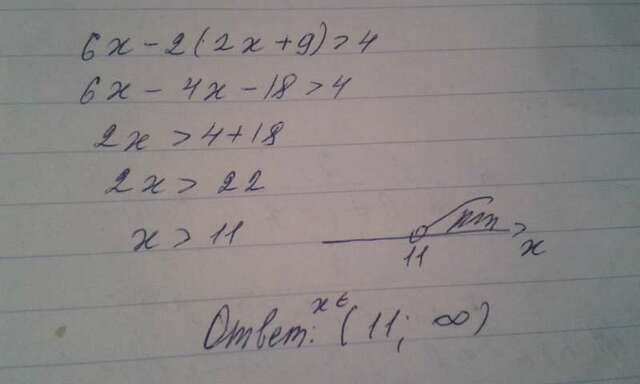 6x - 2(2x+9) > 4
6x - 4x - 18 > 4
2x > 4+18
2x > 22
x > 11
11 x
Ответ: x∈ (11; ∞)